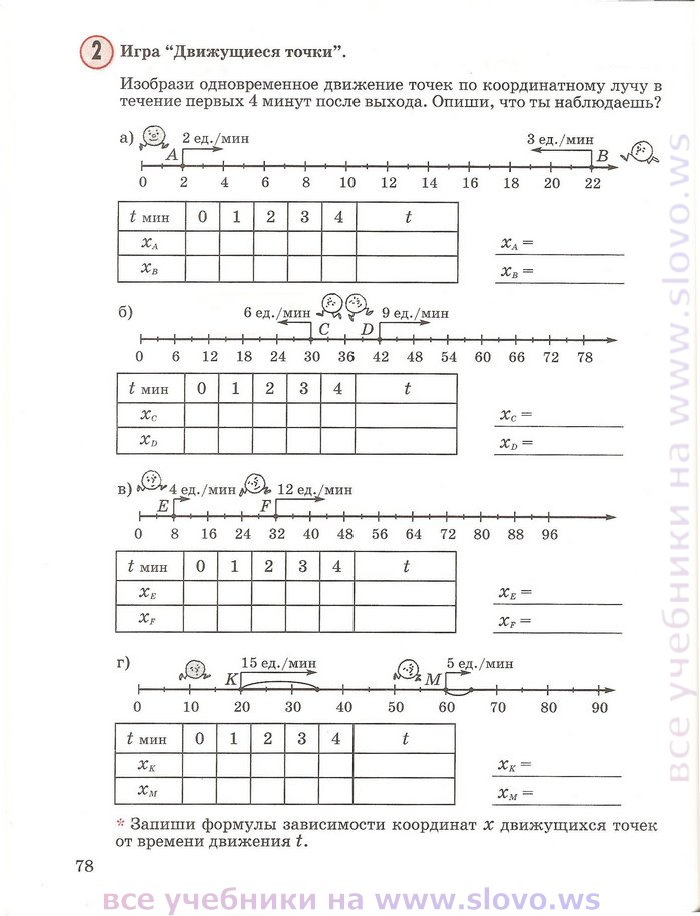 2 Игра “Движущиеся точки”.
Изобрази одновременное движение точек по координатному лучу в
течение первых 4 минут после выхода. Опиши, что ты наблюдаешь?
а) 2 ед./мин 3 ед./мин
A B
0 2 4 6 8 10 12 14 16 18 20 22
t мин 0 1 2 3 4 t
x_A x_A =
x_B x_B =
б) 6 ед./мин 9 ед./мин
C D
0 6 12 18 24 30 36 42 48 54 60 66 72 78
t мин 0 1 2 3 4 t
x_C x_C =
x_D x_D =
в) 4 ед./мин 12 ед./мин
E F
0 8 16 24 32 40 48 56 64 72 80 88 96
t мин 0 1 2 3 4 t
x_E x_E =
x_F x_F =
г) 15 ед./мин 5 ед./мин
K M
0 10 20 30 40 50 60 70 80 90
t мин 0 1 2 3 4 t
x_K x_K =
x_M x_M =
* Запиши формулы зависимости координат x движущихся точек
от времени движения t.
78
все учебники на www.slovo.ws
все учебники на www.slovo.ws